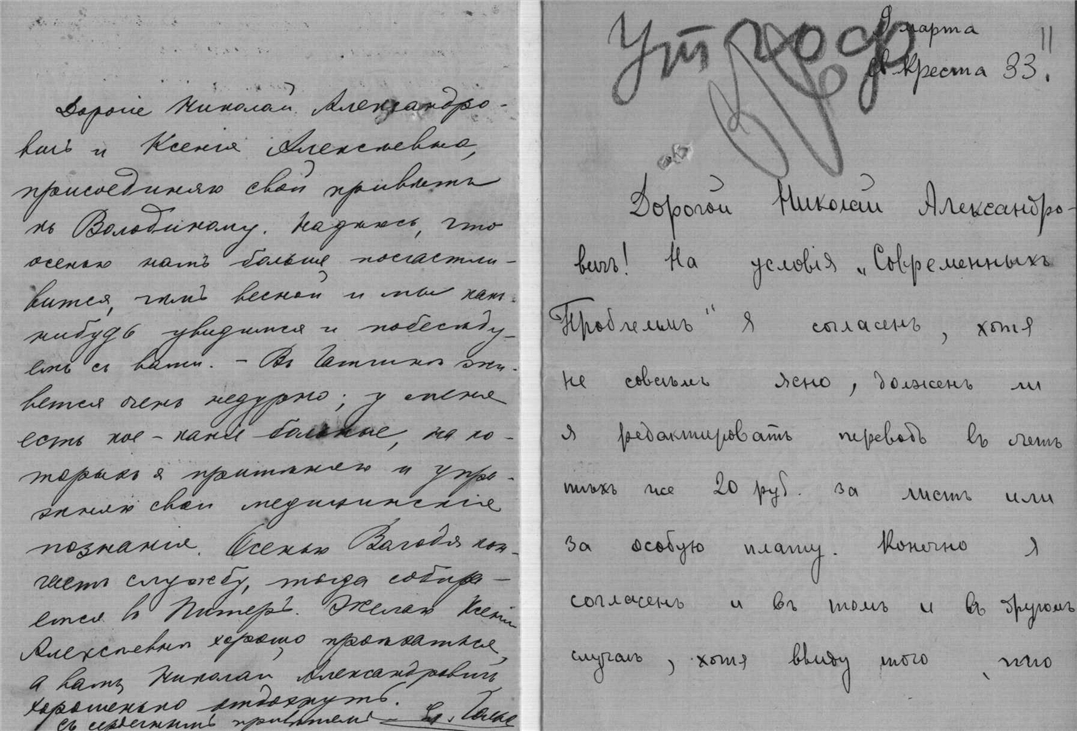 Дорогіе Николай Александро-
вичъ и Ксенія Алексѣевна,
присоединяю свой привѣтъ
къ Володиному. Надѣюсь, что
осенью намъ больше посчастли-
вится, чѣмъ весной и мы какъ-
нибудь увидимся и побесѣду-
емъ съ вами. – Въ Гатчинѣ жи-
вется очень недурно; у меня
есть кое-какіе больные, на ко-
торыхъ я примѣняю и упра-
жняю свои медицинскіе
познанія. Осенью Володя кон-
чаетъ службу, тогда собира-
ется въ Питеръ. Желаю Ксеніи
Алексѣевнѣ хорошо прокатиться,
а вамъ, Николай Александровичъ
хорошенько отдохнуть.
Съ сердечнымъ привѣтомъ
Утгоф
9 марта
Креста 33.
11
Дорогой Николай Александро-
вичъ! На условія „Современныхъ
Проблемъ" я согласенъ, хотя
не совсѣмъ ясно, долженъ ли
я редактировать переводъ въ счетъ
тѣхъ же 20 руб. за листъ или
за особую плату. Конечно я
согласенъ и въ томъ и въ другомъ
случаѣ, хотя ввиду того что